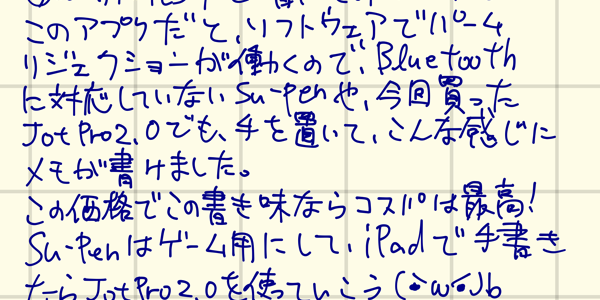 このアプリだと、ソフトウェアでパーム
リジェクションが働くので、Bluetooth
に対応していないSu-penや、今回買った
JotPro2.0でも、手を置いて、こんな感じに
メモが書けました。
この価格でこの書き味ならコスパは最高!
Su-Penはゲーム用にして、iPadで手書き
JotPro2.0を使っていこう